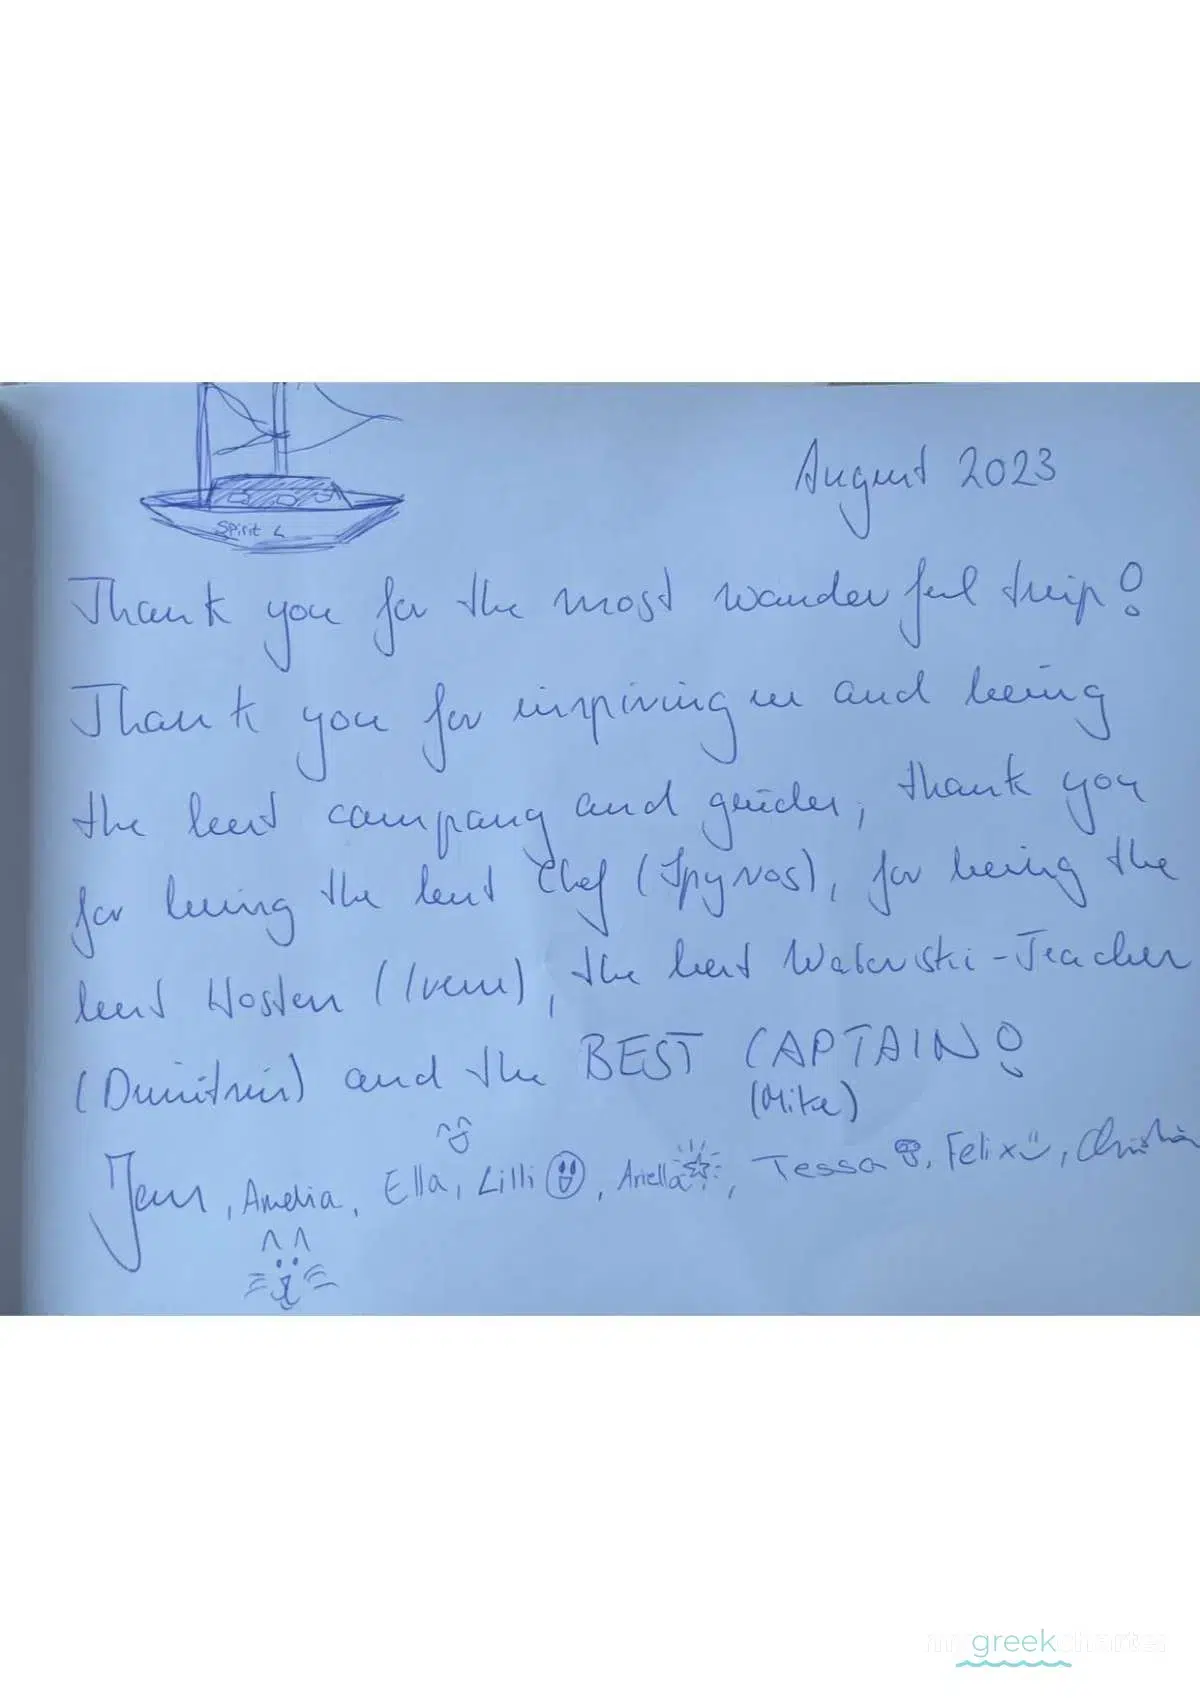 August 2023
Spirit 4
Thank you for the most wonderful trip!
Thank you for inspiring us and being
the best company and guides, thank you
for being the best Chef (Spyros), for being the
best Hosten (Irene), the best Waterski-Teacher
(Dimitris) and the BEST CAPTAIN!
(Mike)
Jens, Amelia, Ella, Lilli, Ariella, Tessa, Felix, Christian
mygreekcharter